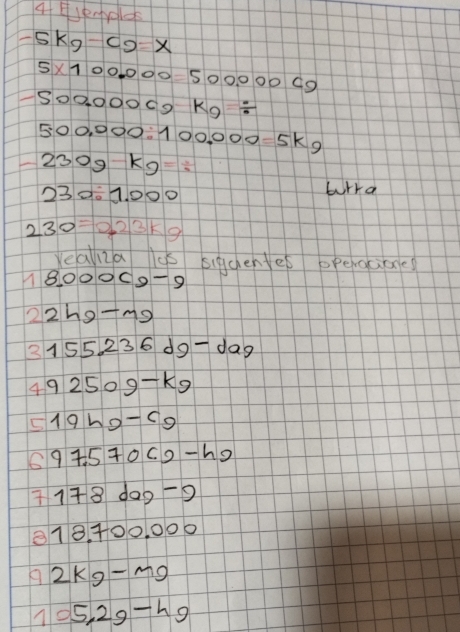 4 Ejemplos
-5kg-cg=x
5x100.000=500.000 cg
-500.000cg-kg=÷
500.000÷100.000=5kg
-230g-kg=÷
230÷1.000
burra
230=0,23kg
realiza las siguientes operaciones
1 8.000cg-g
2 2hg-mg
3 155.236 dg-dag
4 9250g-kg
5 19hg-cg
6 97.570cg-hg
7 178 dag-g
8 18.700.000
9 2kg-mg
10 5,2g-hg